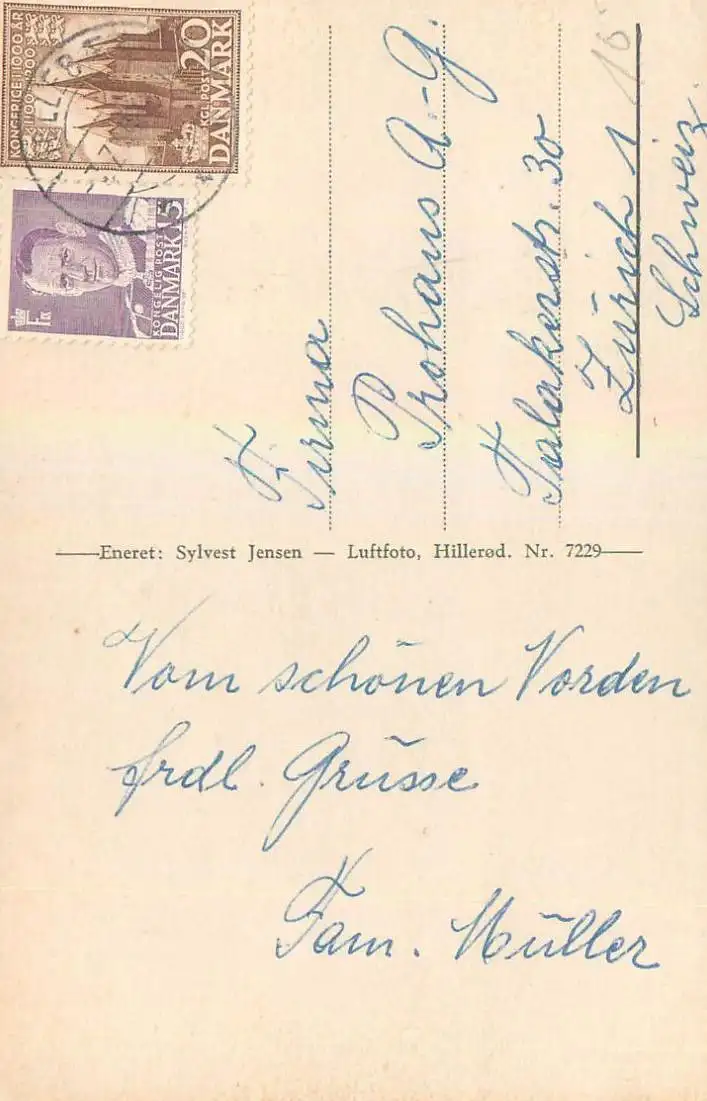 KONGERIGE I 1000 ÅR
20
KGL. POST
DANMARK
KONGELIG POST
DANMARK 15
Firma
Prohaus A-G.
Talakerstr. 30
Zürich 1
Schweiz.
15
Eneret: Sylvest Jensen — Luftfoto, Hillerød. Nr. 7229
Vom schönen Norden
frdl. Grüsse
Fam. Müller